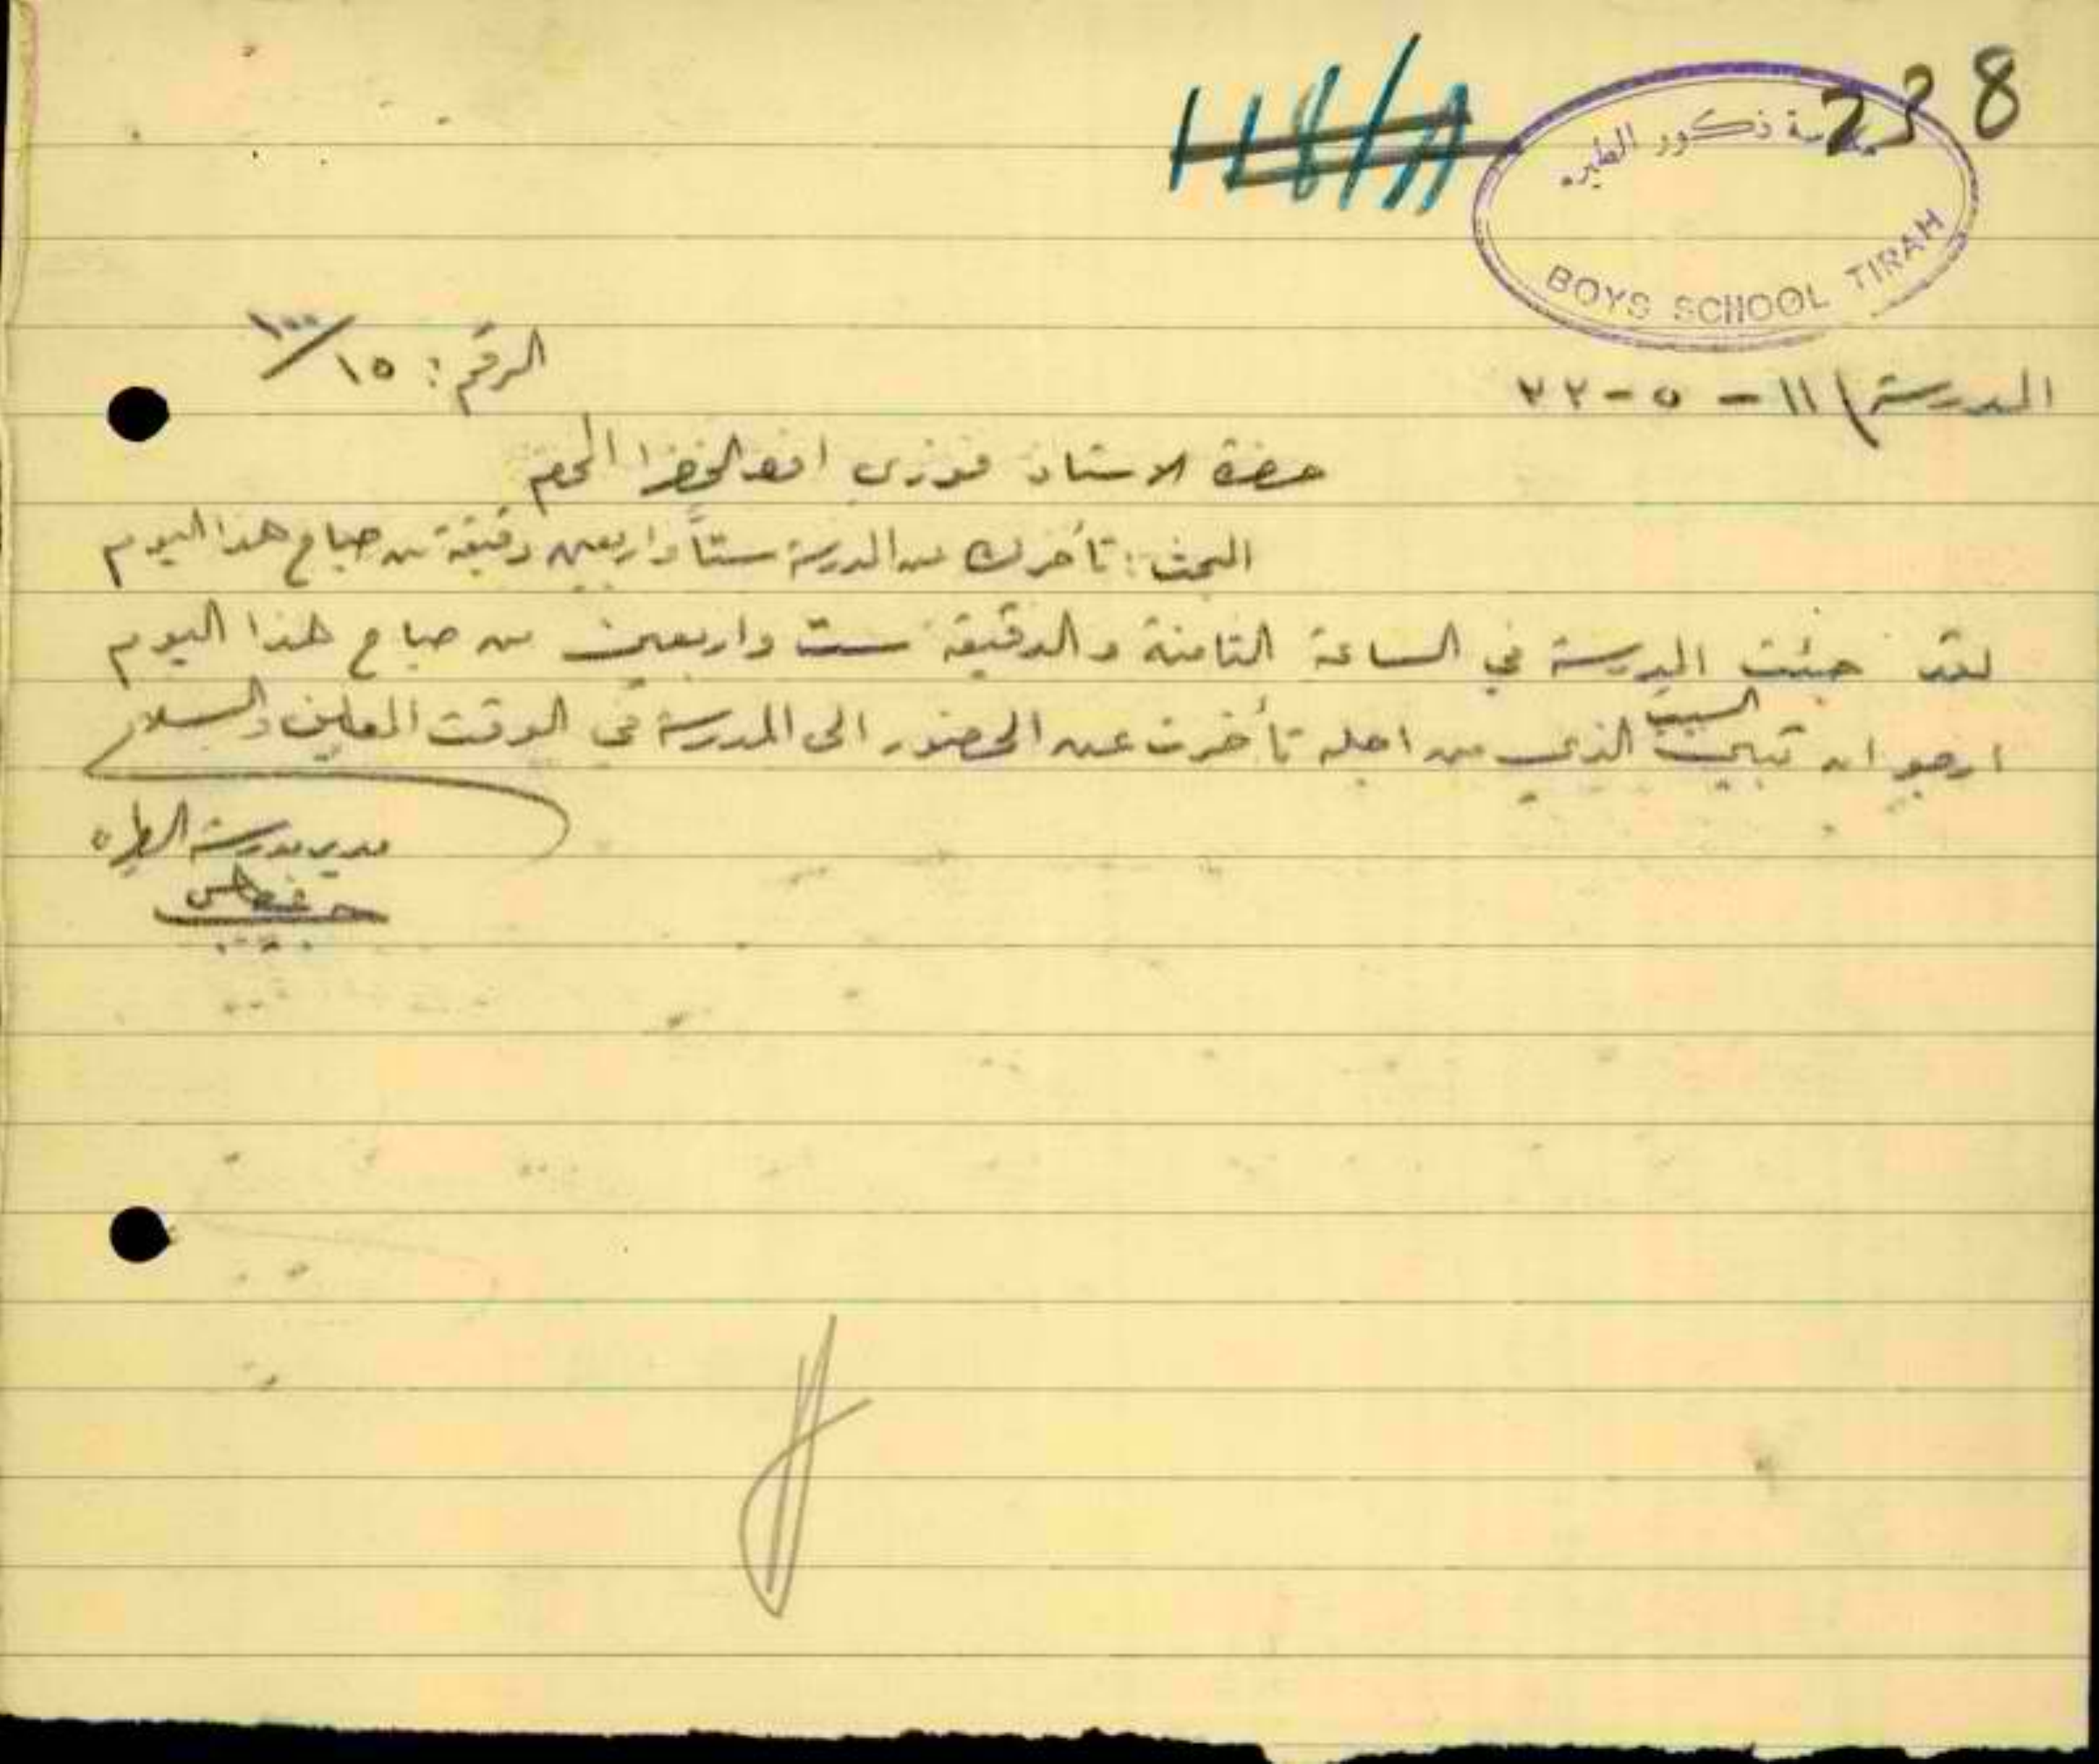 238
118/
مدرسة ذكور الطيره
BOYS SCHOOL TIRAH
الرقم: ١٥/١٠٠
المدرسة ١١ - ٥ -
حضرة الاستاذ فوزي افندي الخضرا المحترم
البحث: تأخرك عن المدرسة ستاً واربعين دقيقة من صباح هذا اليوم
لقد جئت المدرسة في الساعة الثامنة والدقيقة ست واربعين من صباح هذا اليوم
ارجو ان تبين السبب الذي من اجله تأخرت عن الحضور الى المدرسة في الوقت المعين والسلام
مدير مدرسة الطيره